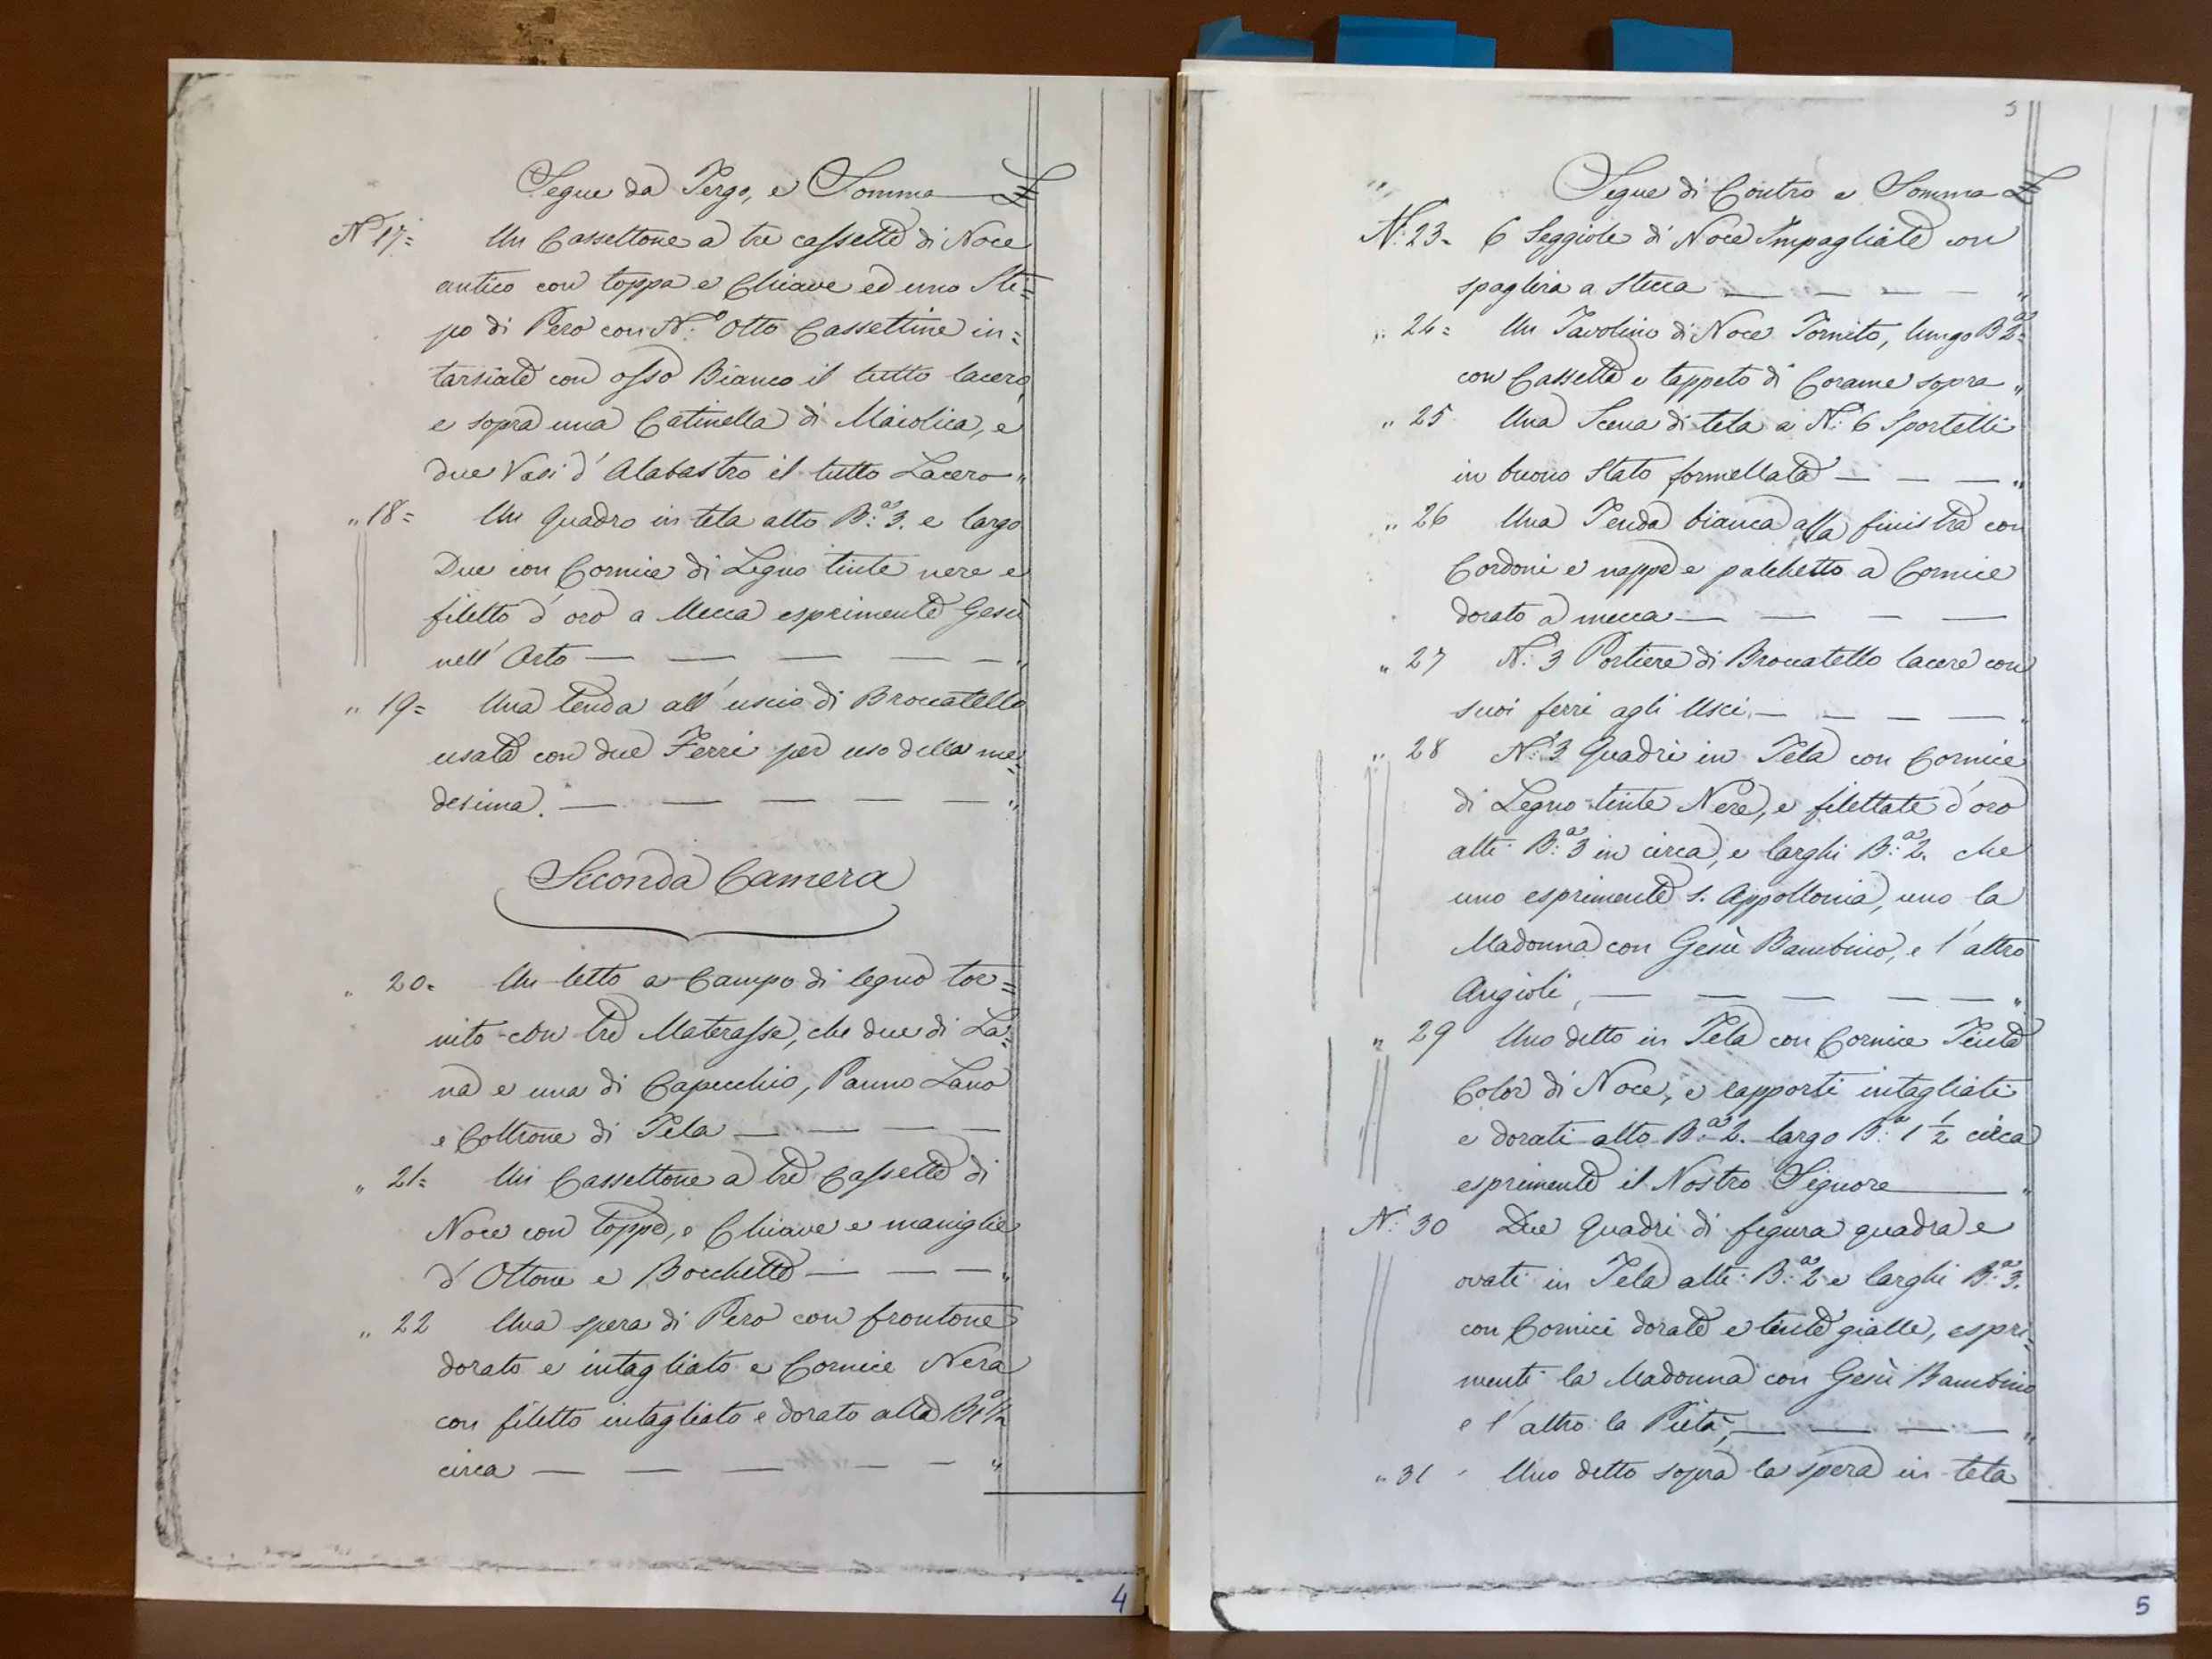 Segue da Tergo, e Somma £
N° 17= Un Cassettone a tre cassette di Noce
antico con toppa e Chiave ed uno Sti=
po di Pero con N.° Otto Cassettine in=
tarsiate con osso Bianco il tutto lacero,
e sopra una Catinella di Maiolica, e
due Vasi d'Alabastro il tutto Lacero "
" 18= Un quadro in tela alto B:a 3. e largo
Due con Cornice di Legno tinte nere e
filetto d'oro a Mecca esprimente Gesù
nell'Orto — — — — — "
" 19= Una tenda all'uscio di Broccatello
usata con due Ferri per uso della me=
desima. — — — — — "
Seconda Camera
" 20= Un letto a Campo di legno tor=
nito con tre Materasse, che due di La=
na e una di Capecchio, Panno Lano
e Coltrone di Tela — — — —
" 21= Un Cassettone a tre Cassette di
Noce con toppe, e Chiave e maniglie
d'Ottone e Bocchette — — — "
" 22 Una spera di Pero con frontone
dorato e intagliato e Cornice Nera
con filetto intagliato e dorato alta B:a 1½
circa — — — — — "
4
5
Segue di Contro e Somma £
N.° 23= 6 Seggiole di Noce Impagliate con
spagliera a Stecca — — — — "
" 24= Un Tavolino di Noce Tornito, lungo B:a 2=
con Cassetta e tappeto di Corame sopra "
" 25 Una Scena di tela a N.° 6 Sportelli
in buono Stato formellata — — — "
" 26 Una Tenda bianca alla finistra con
Cordoni e nappe e palchetto a Cornice
dorato a mecca — — — —
" 27 N.° 3 Portiere di Broccatello lacere con
suoi ferri agli Usci, — — — — "
" 28 N.° 3 Quadri in Tela con Cornice
di Legno tinte Nere, e filettate d'oro
alti B:a 3 in circa, e larghi B:a 2. che
uno esprimente S. Appollonia, uno la
Madonna con Gesù Bambino, e l'altro
Angioli, — — — — — "
" 29 Uno detto in Tela con Cornice Tinta
Color di Noce, e rapporti intagliati
e dorati alto B:a 2. largo B:a 1 ½ circa
esprimente il Nostro Signore — "
N.° 30 Due Quadri di figura quadra e
ovati in Tela alti B:a 2 e larghi B:a 3.
con Cornici dorate e tinte gialle, espri=
menti la Madonna con Gesù Bambino
e l'altro la Pietà, — — — — "
" 31 Uno detto sopra la spera in tela
5